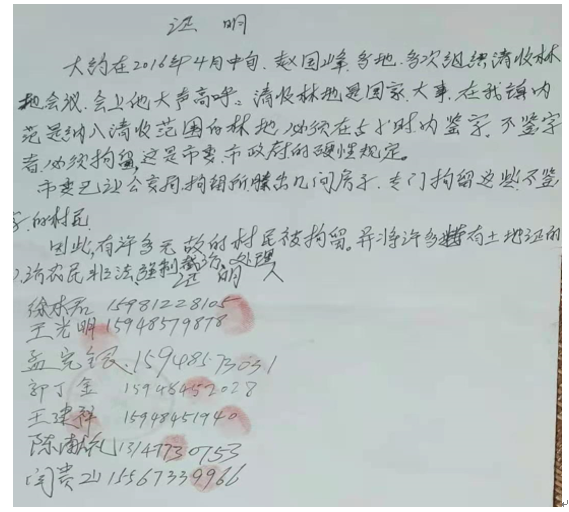 证明
大约在2016年4月中旬.赵国峰.多地.多次组织清收林
地会议.会上他大声高呼.清收林地是国家大事.在我镇内
范是纳入清收范围的林地.必须在5小时内鉴字.不鉴字
者.必须拘留.这是市委.市政府的硬性规定。
市委已让公安局拘留所腾出几间房子.专门拘留这些不鉴
字的村民.
因此.有许多无故的村民被拘留。并将许多持有土地证的
农民非法强制处理
证明人
徐木石 15981228105
王光明 15948579878
孟宪民.15948573031
郭丁金 15946452028
王建科 15948451940
陈 13147730753
闫贵山 15567339966